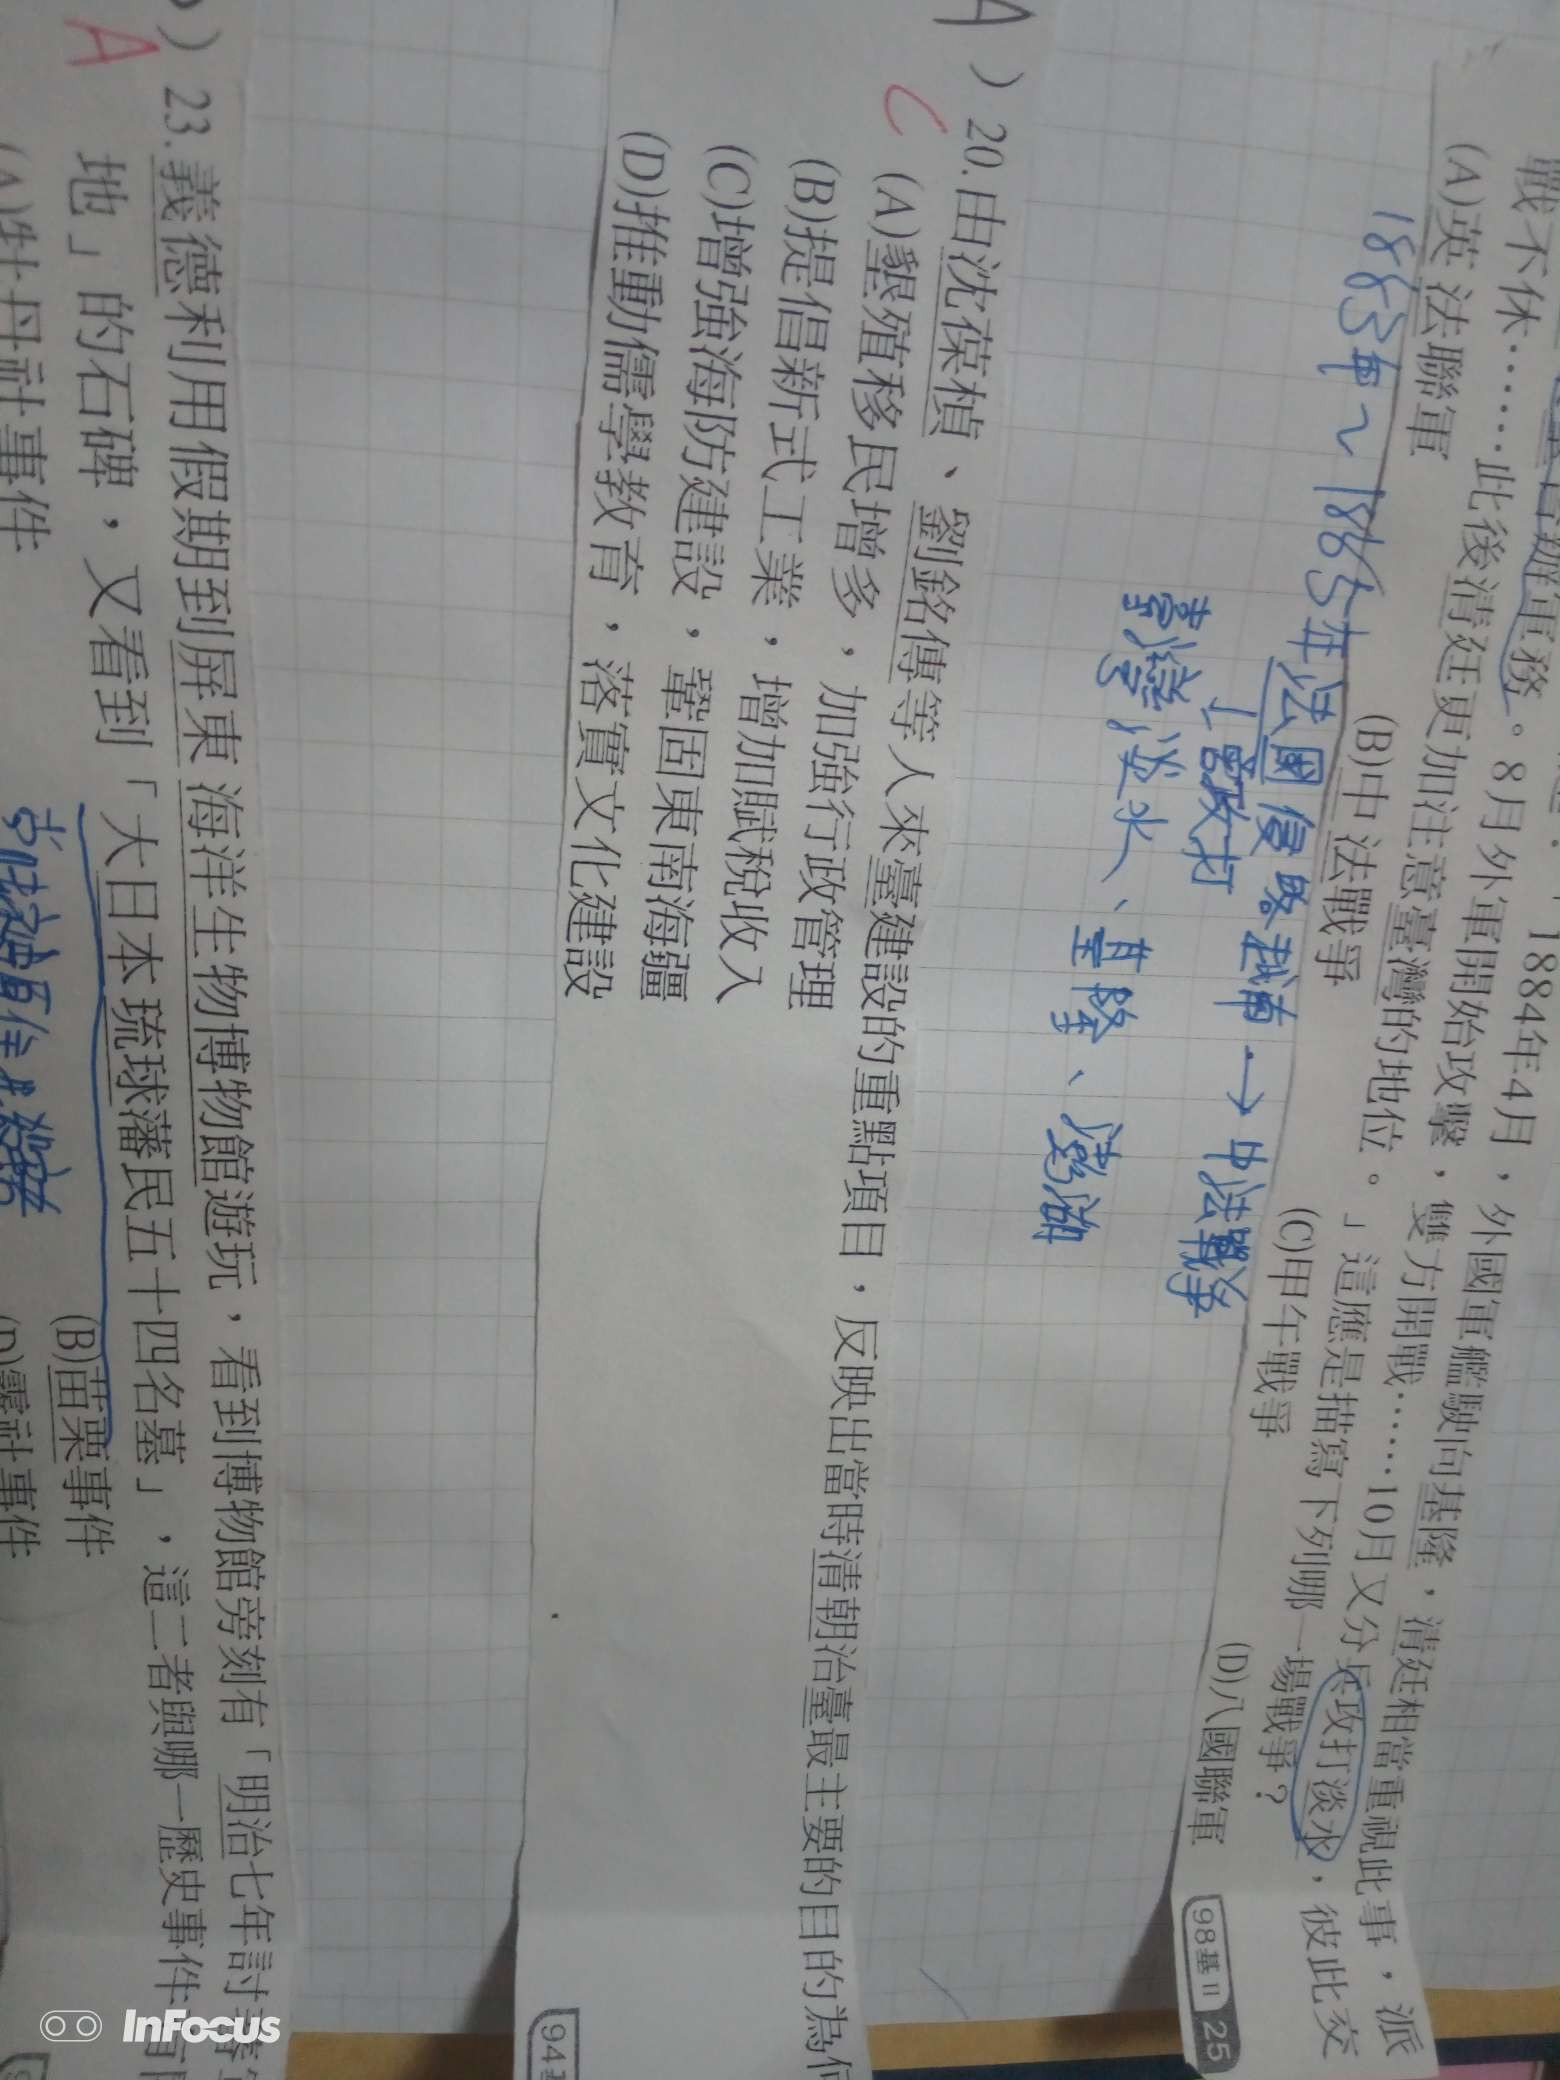 1884年4月，外國軍艦駛向基隆，清廷相當重視此事，派
軍務。8月外軍開始攻擊，雙方開戰……10月又分兵攻打淡水，彼此交
戰不休……此後清廷更加注意臺灣的地位。」這應是描寫下列哪一場戰爭？
(A)英法聯軍 (B)中法戰爭 (C)甲午戰爭 (D)八國聯軍
98基II 25
1883年~1885年法國侵略越南→中法戰爭
曾攻打
臺灣淡水、基隆、澎湖
A ) 20.由沈葆楨、劉銘傳等人來臺建設的重點項目，反映出當時清朝治臺最主要的目的為何
C
(A)墾殖移民增多，加強行政管理
(B)提倡新式工業，增加賦稅收入
(C)增強海防建設，鞏固東南海疆
(D)推動儒學教育，落實文化建設
94
) 23.義德利用假期到屏東海洋生物博物館遊玩，看到博物館旁刻有「明治七年討蕃
A
地」的石碑，又看到「大日本琉球藩民五十四名墓」，這二者與哪一歷史事件有
(A)牡丹社事件 (B)苗栗事件
(D)霧社事件
InFocus